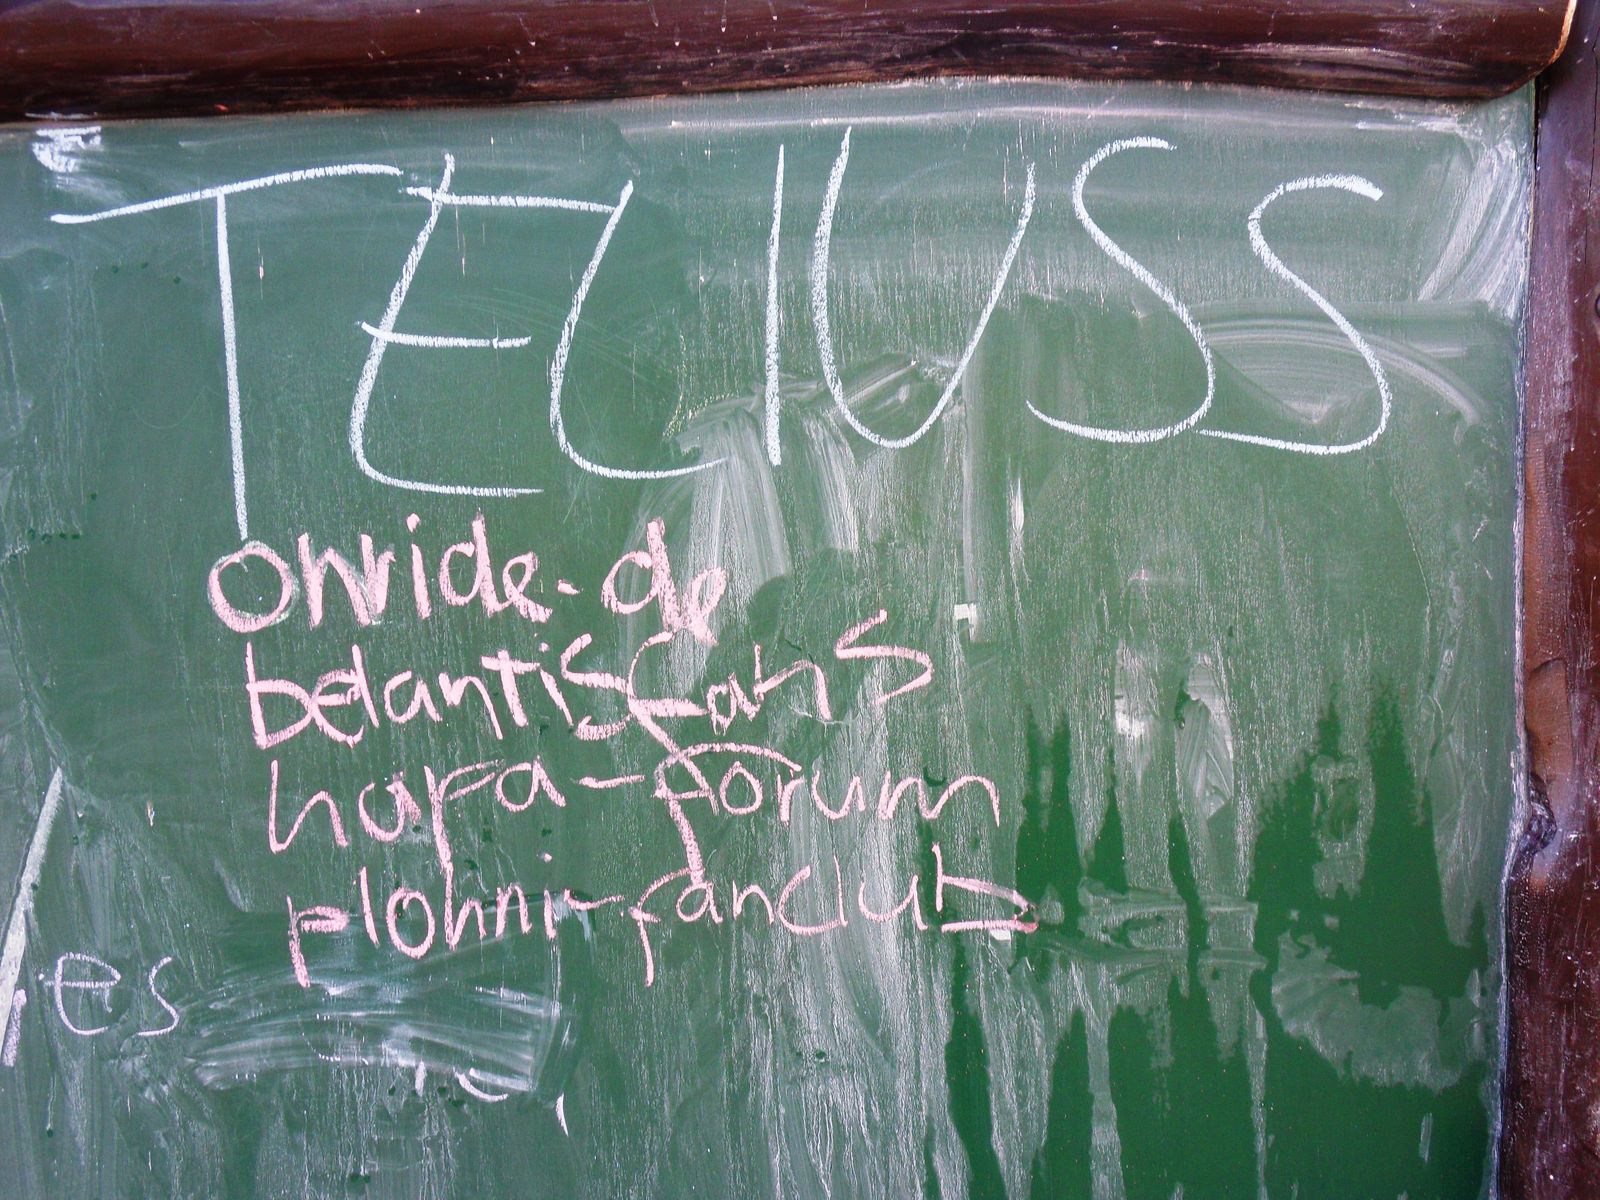 TELIUSS
onride.de
belantisfans
hupa-forum
plohni-fanclub
es